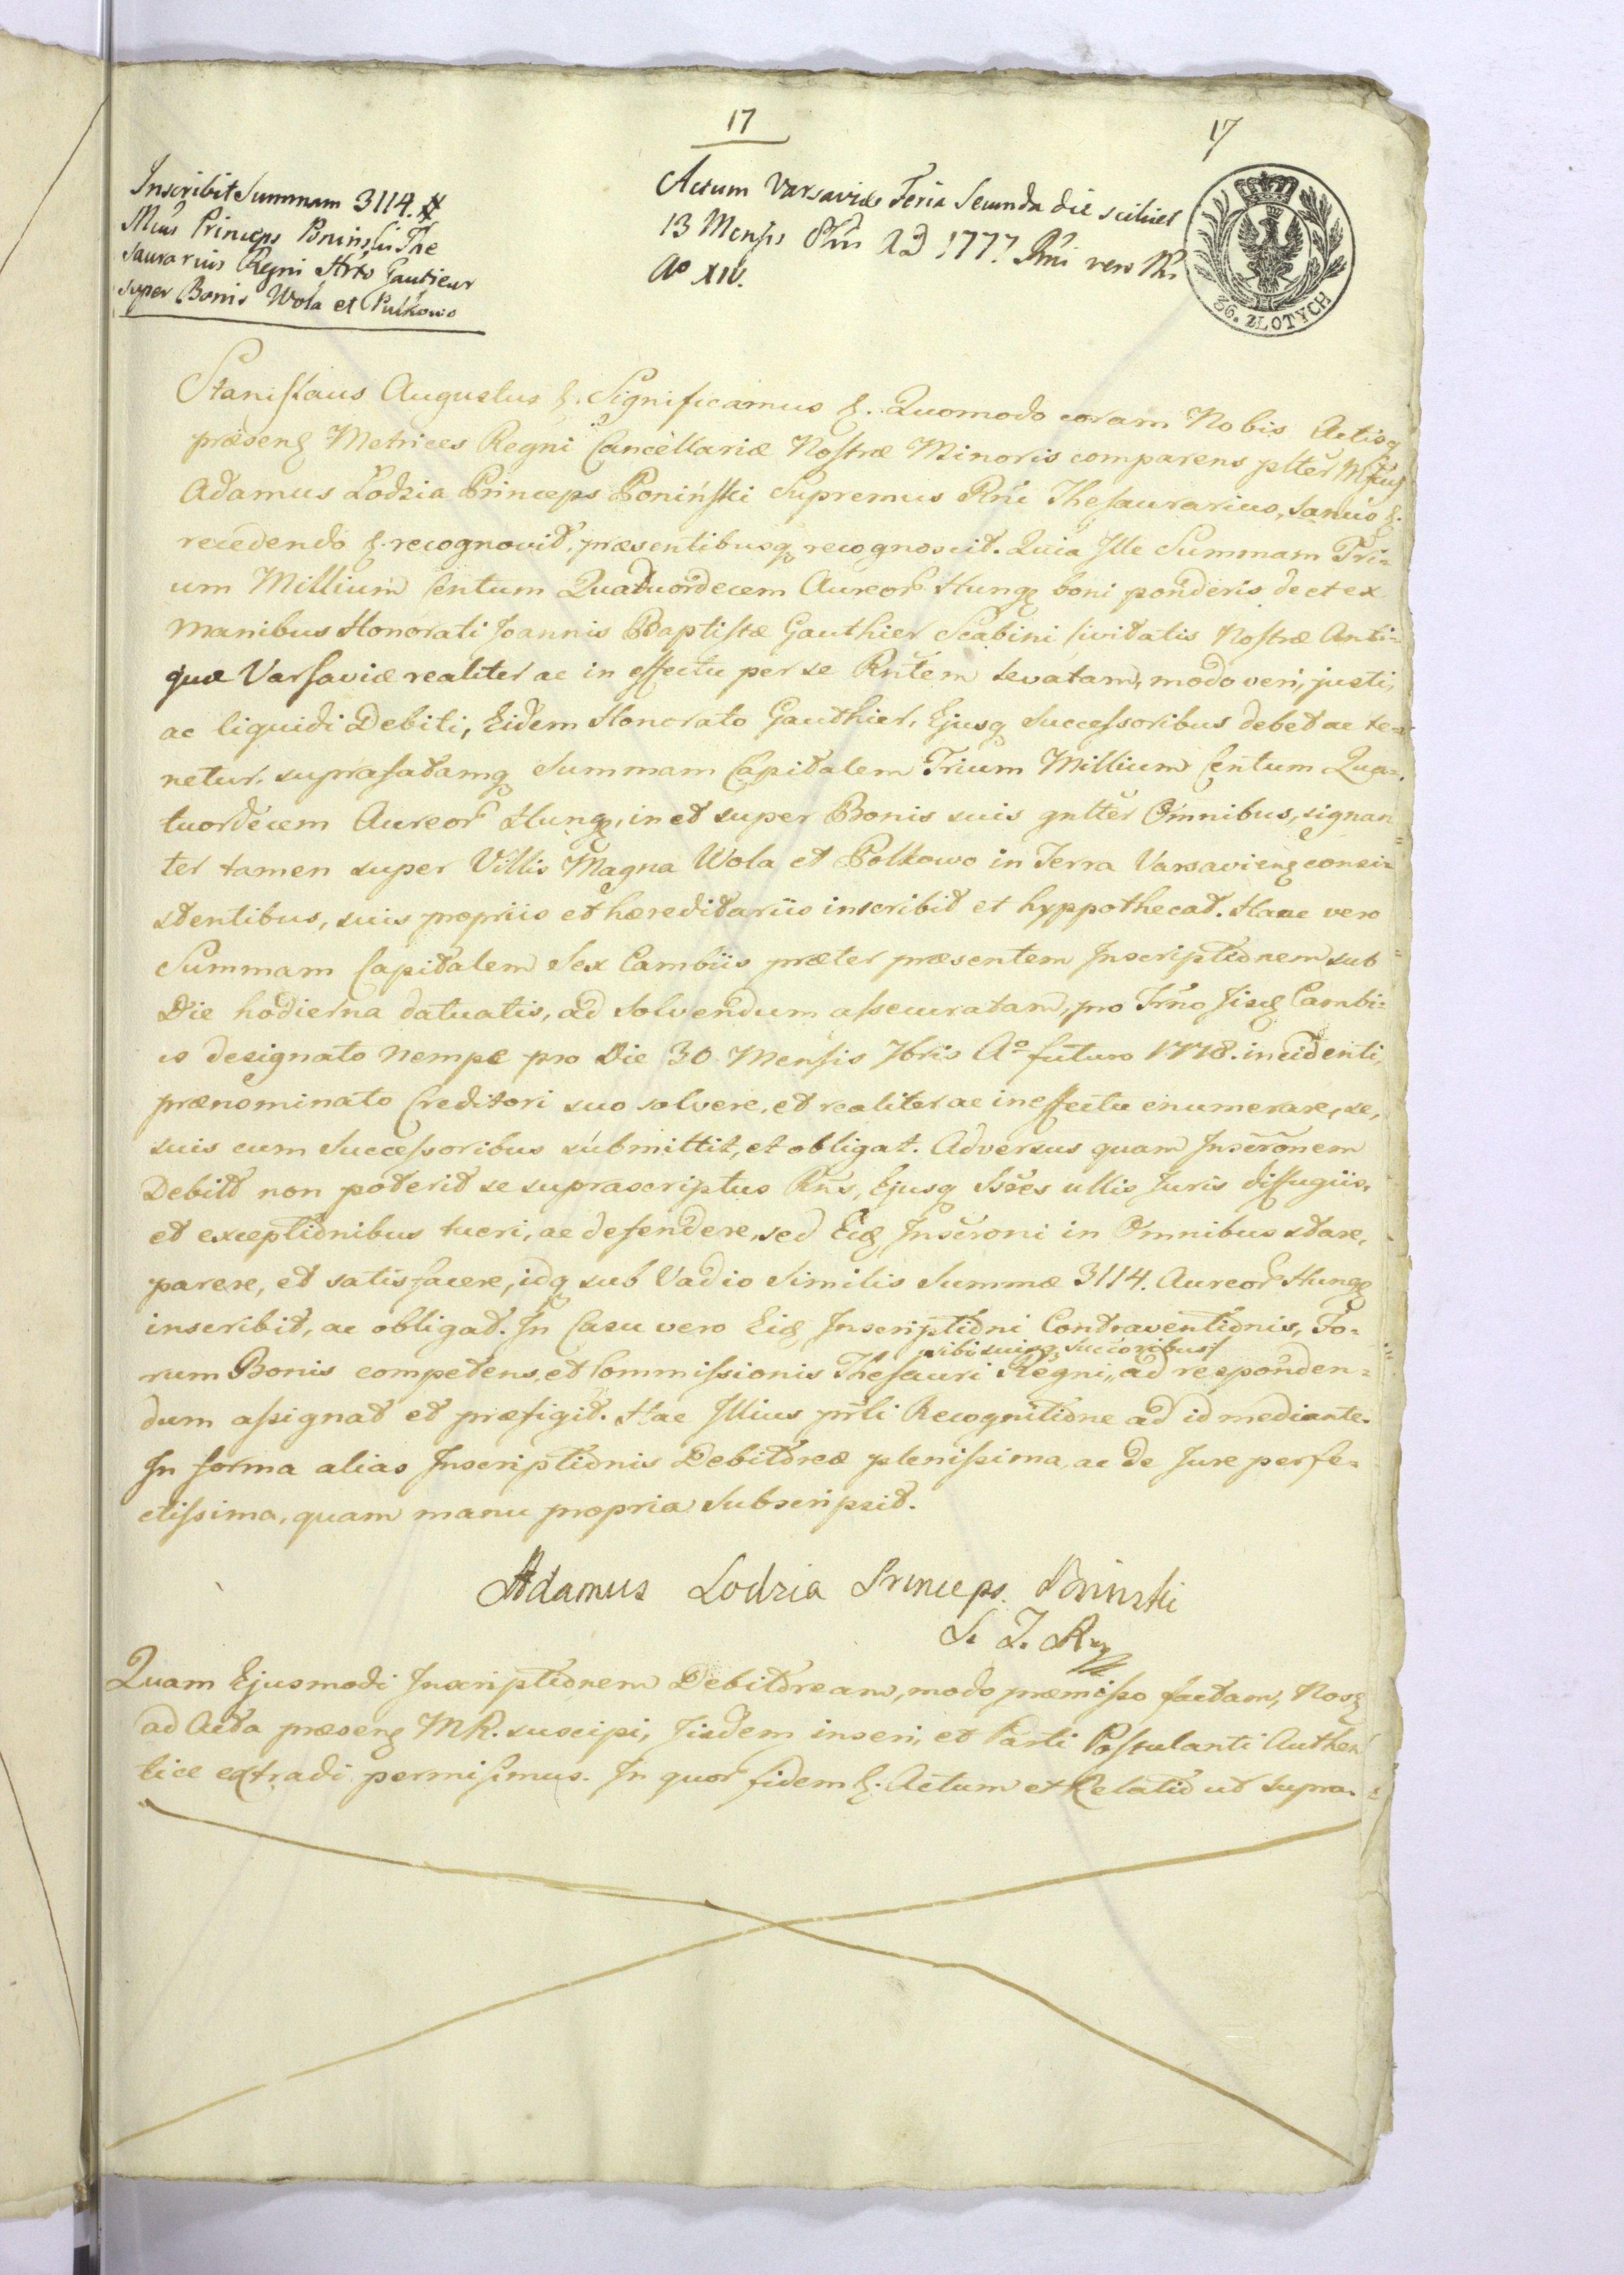 17
17
Inscribit Summam 3114. #
Mcus Princeps Poninski The
saurarius Regni Hrto Gautieur
super Bonis Wola et Pulkowo
Actum Varsaviæ Feria Secunda die scilicet
13 Mensis 8bris AD 1777. Rni vero Nri
Ao XIV.
36. ZŁOTYCH
Stanislaus Augustus &. Significamus &. Quomodo coram Nobis Actisq
præsen Metrices Regni Cancellariæ Nostræ Minoris comparens plter
Adamus Łodzia Princeps Poniński Supremus Rni Thesaurarius, sanus &.
recedendo &. recognovit, præsentibusq recognoscit. Quia Ille Summam Tri=
um Millium Centum Quatuordecem Aureor Hung boni ponderis de et ex
Manibus Honorati Joannis Baptistæ Gauthier Scabini Civitatis Nostræ Anti=
quæ Varsaviæ realiter ac in effectu per se Rntem levatam, modo veri, justi,
ac liquidi Debiti, Eidem Honorato Gauthier, Ejusq Successoribus debet ac te=
netur. suprafatamq Summam Capitalem Trium Millium Centum Qua=
tuordecem Aureor Hung, in et super Bonis suis gnlter Omnibus, signan
ter tamen super Villis Magna Wola et Polkowo in Terra Varsavien consi=
stentibus, suis propriis et hæreditariis inscribit et hyppothecat. Hanc vero
Summam Capitalem Sex Cambiis præter præsentem Inscriptionem sub
Die hodierna datuatis, ad solvendum assecuratam, pro Trno Iisd Cambi=
is designato nempe pro Die 30 Mensis 7bris Ao futuro 1778. incidenti,
prænominato Creditori suo solvere, et realiter ac in effectu enumerare, se,
suis cum Successoribus submittit, et obligat. Adversus quam Inscronem
Debitt non poterit se suprascriptus Rns, Ejusq Ssces ullis Juris diffugiis,
et exceptionibus tueri, ac defendere, sed Eid Inscroni in Omnibus stare,
parere, et satisfacere, idq sub Vadio Similis Summæ 3114. Aureor Hung
inscribit, ac obligat. In Casu vero Eid Inscriptioni Contraventionis, Fo=
sibi suisq Succoribus
rum Bonis competens, et Commissionis Thesauri Regni, ad responden=
dum assignat et præfigit. Hac Illius prli Recognitione ad id mediante.
In forma alias Inscriptionis Debitoreæ plenissima, ac de Jure perfe=
ctissima, quam manu propria subscripsit.
Adamus Lodzia Princeps. Poninski
S. T. R
Quam Ejusmodi Inscriptionem Debitoream, modo præmisso factam, Nos
ad Acta præsen MR. suscipi, Iisdem inseri, et Parti Postulanti Authen
tice extradi permisimus. In quor fidem &. Actum et Relatio ut supra.